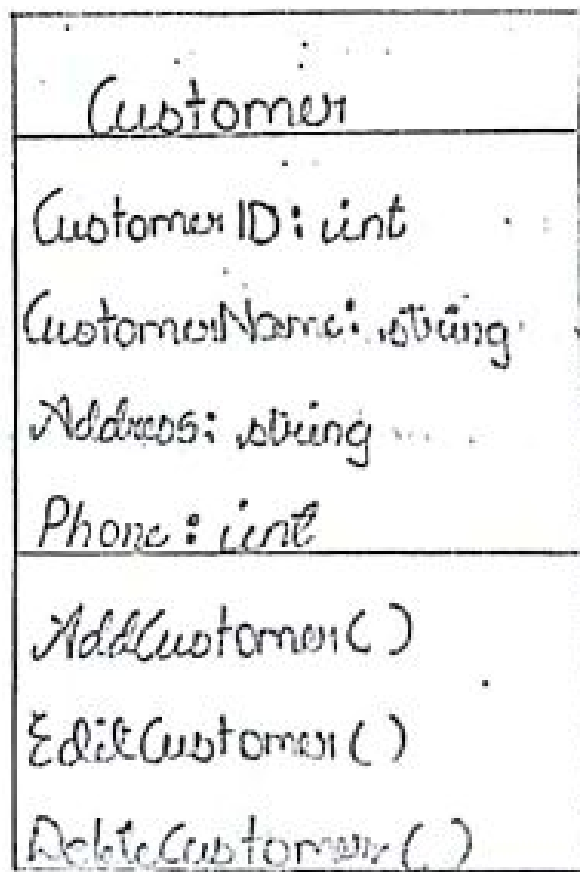 Customer
CustomerID: int
CustomerName: string
Address: string
Phone: int
AddCustomer()
EditCustomer()
DeleteCustomer()